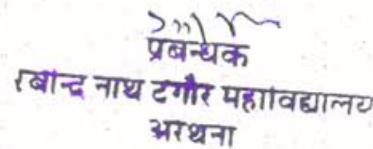 प्रबन्धक
रबीन्द्र नाथ टैगौर महाविद्यालय
अरथना